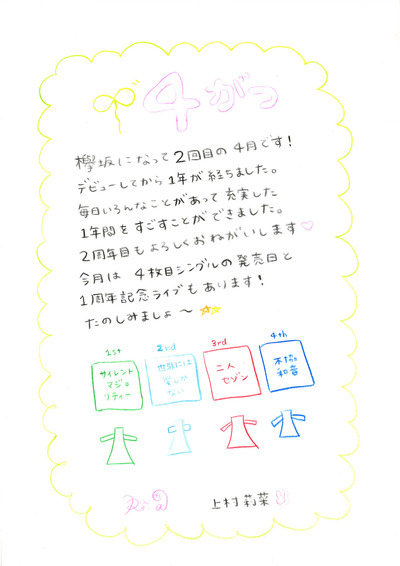 4がつ
欅坂になって2回目の4月です！
デビューしてから1年が経ちました。
毎日いろんなことがあって充実した
1年間をすごすことができました。
2周年目もよろしくおねがいします♡
今月は 4枚目シングルの発売日と
1周年記念ライブもあります！
たのしみましょ〜
1st
サイレント
マジョ
リティー
2nd
世界には
愛しか
ない
3rd
二人
セゾン
4th
不協
和音
上村莉菜